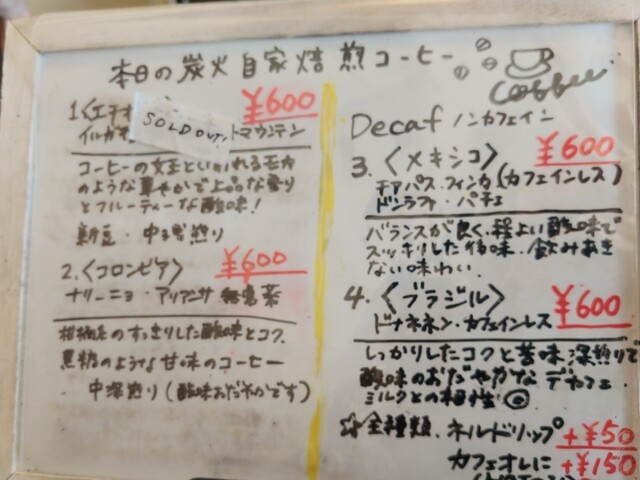 本日の炭火自家焙煎コーヒー
Coffee
1.〈エチオ
¥600
SOLD OUT!
トマウンテン
コーヒーの女王といわれるモカ
のような華やかで上品な香り
とフルーティーな酸味!
新豆・中深煎り
2.〈コロンビア〉
¥600
ナリーニョ・アリアンサ 無農薬
柑橘系のすっきりした酸味とコク
黒糖のような甘味のコーヒー
中深煎り(酸味おだやかです)
Decaf ノンカフェイン
3.〈メキシコ〉
¥600
チアパス・フィンカ(カフェインレス)
ドンラファ・パチェ
バランスが良く、程よい酸味で
スッキリした後味、飲みあき
ない味わい
4.〈ブラジル〉
¥600
ドナネネン・カフェインレス
しっかりしたコクと苦味 深煎りで
酸味のおだやかな デカフェ
ミルクとの相性◎
☆全種類、ネルドリップ +¥50
カフェオレに +¥150